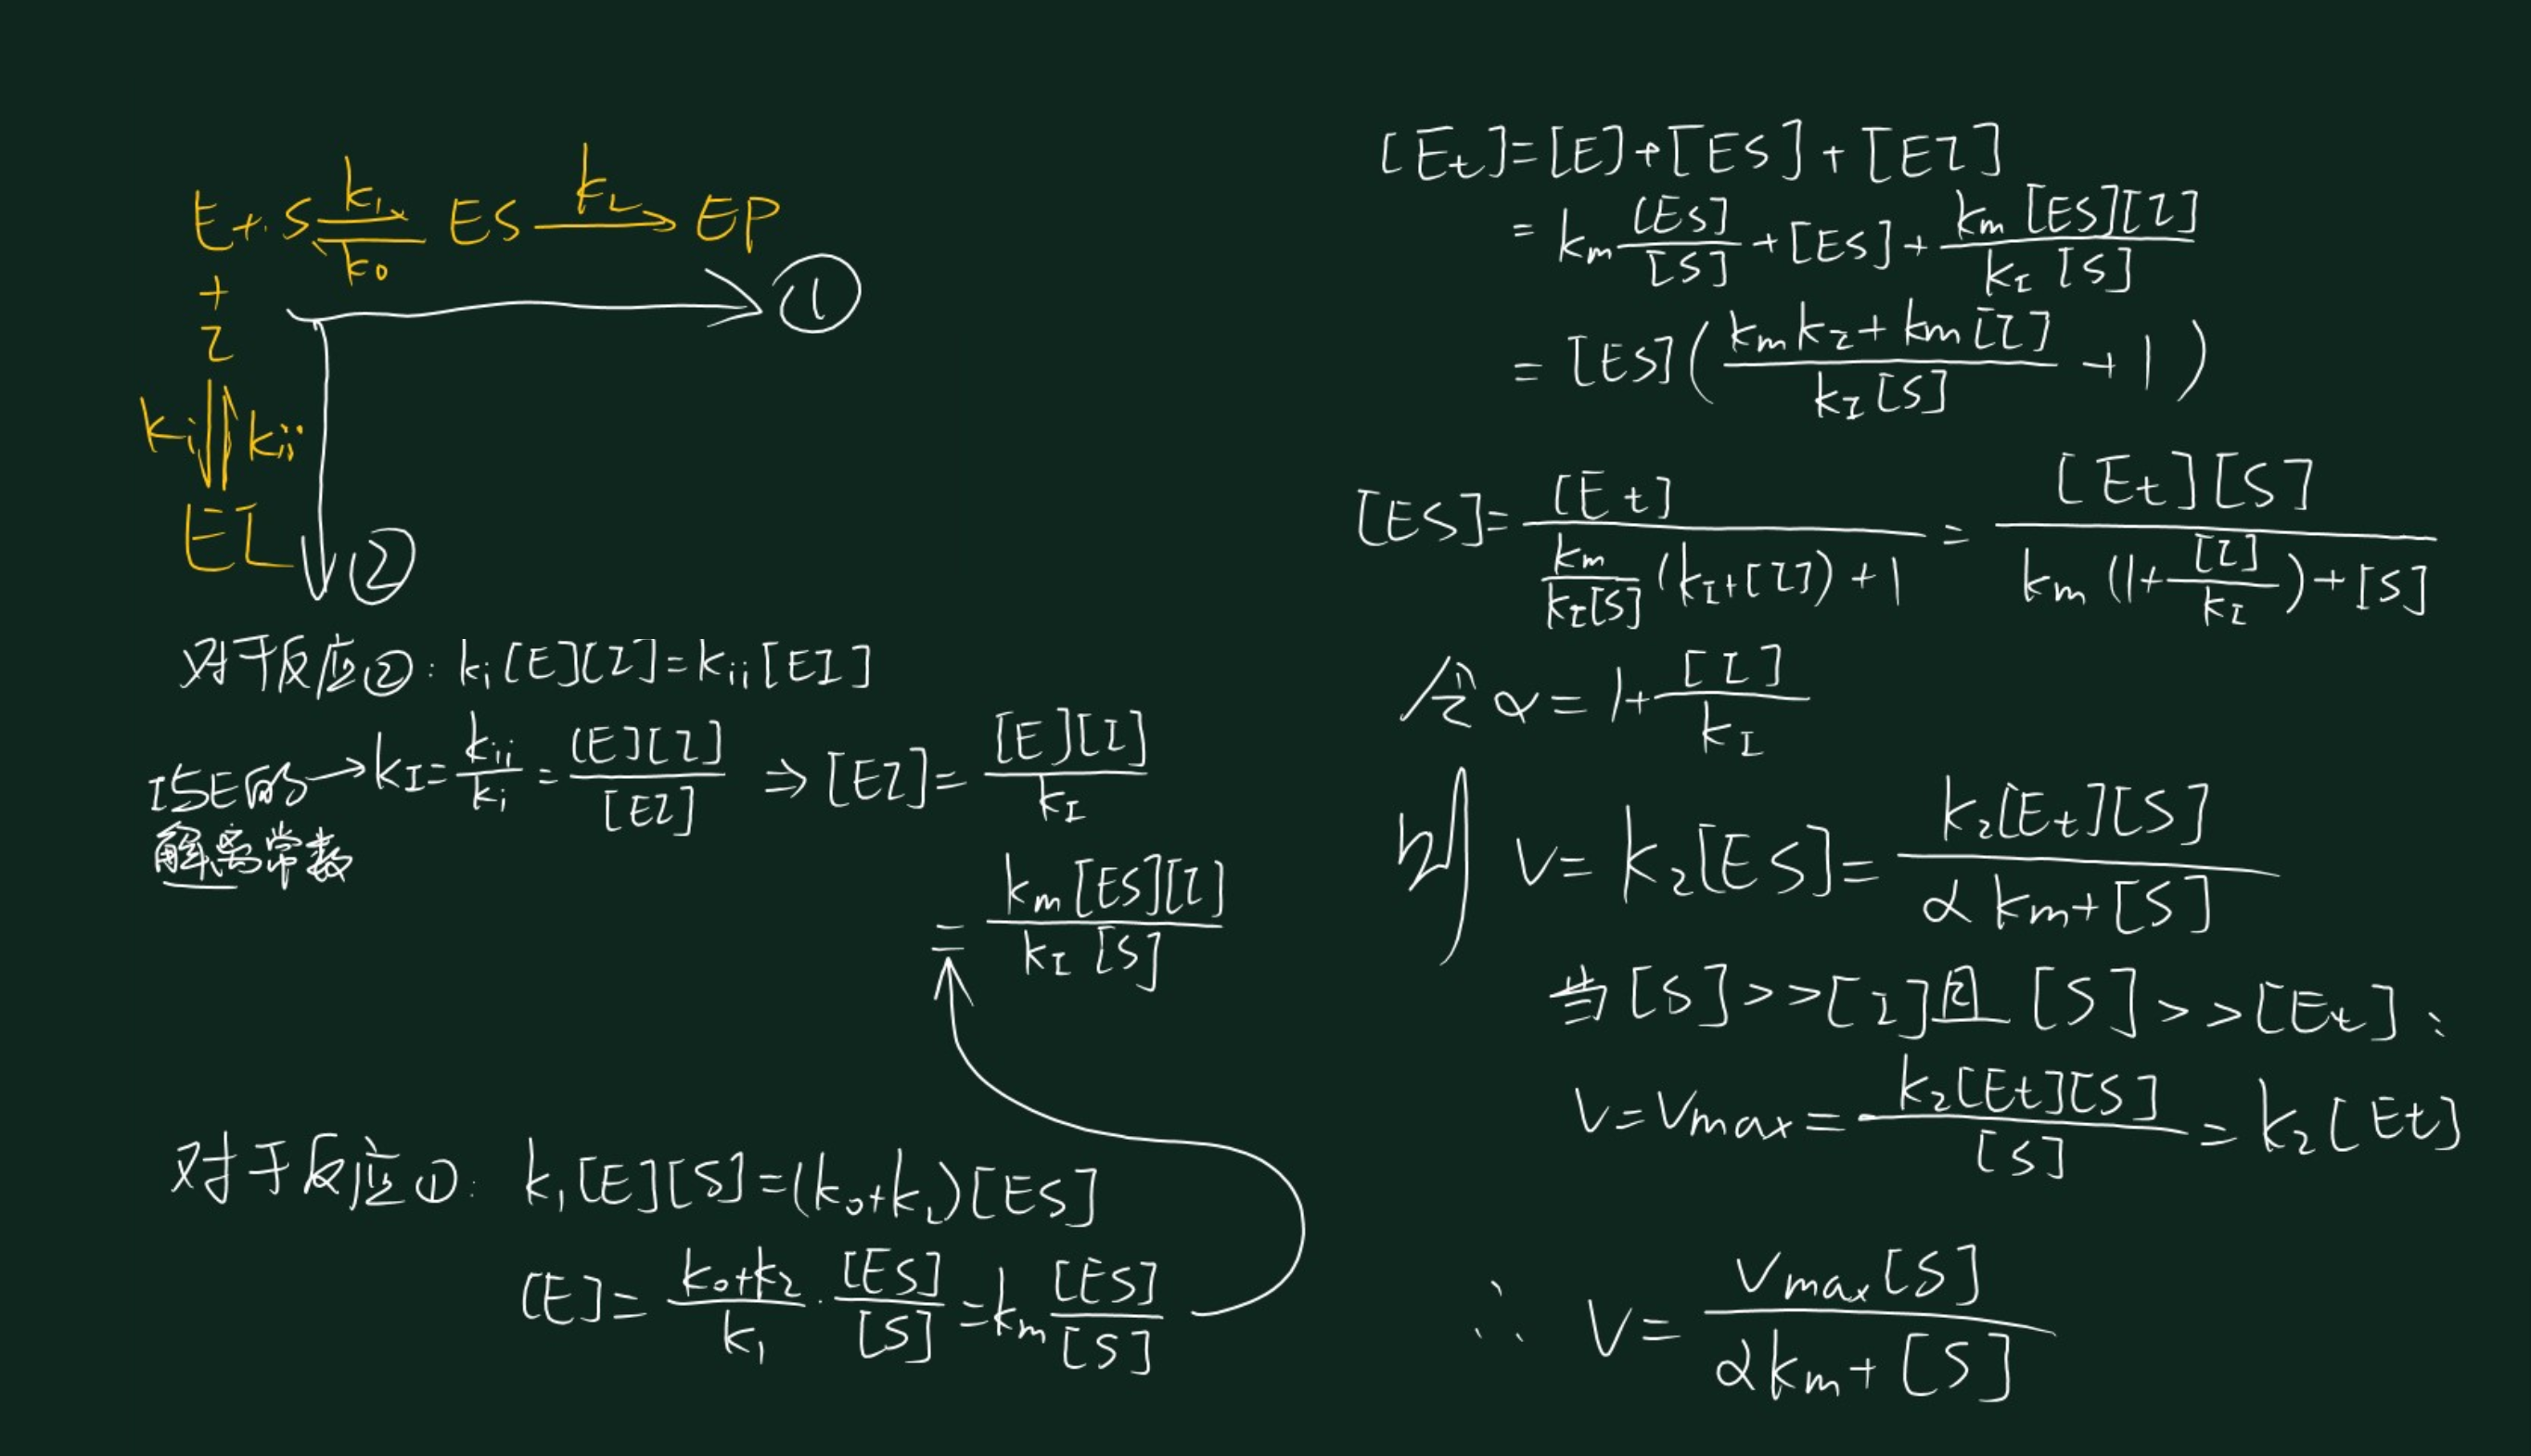 E + S ⇌ ES → EP
k₁ k₂
k₀
+
I
kᵢ kᵢᵢ
EI
①
②
对于反应②: kᵢ[E][I]=kᵢᵢ[EI]
I与E的→k_I=kᵢᵢ/kᵢ=[E][I]/[EI] ⇒ [EI]=[E][I]/k_I
解离常数
=km[ES][I]/k_I[S]
对于反应①: k₁[E][S]=(k₀+k₂)[ES]
[E]=(k₀+k₂)/k₁·[ES]/[S]=km[ES]/[S]
[Et]=[E]+[ES]+[EI]
=km[ES]/[S]+[ES]+km[ES][I]/k_I[S]
=[ES]((km k_I+km[I])/k_I[S]+1)
[ES]=[Et]/(km/k_I[S](k_I+[I])+1)=[Et][S]/(km(1+[I]/k_I)+[S])
令α=1+[I]/k_I
则 V=k₂[ES]=k₂[Et][S]/(αkm+[S])
当[S]>>[I]且[S]>>[Et]:
V=Vmax=k₂[Et][S]/[S]=k₂[Et]
∴ V=Vmax[S]/(αkm+[S])